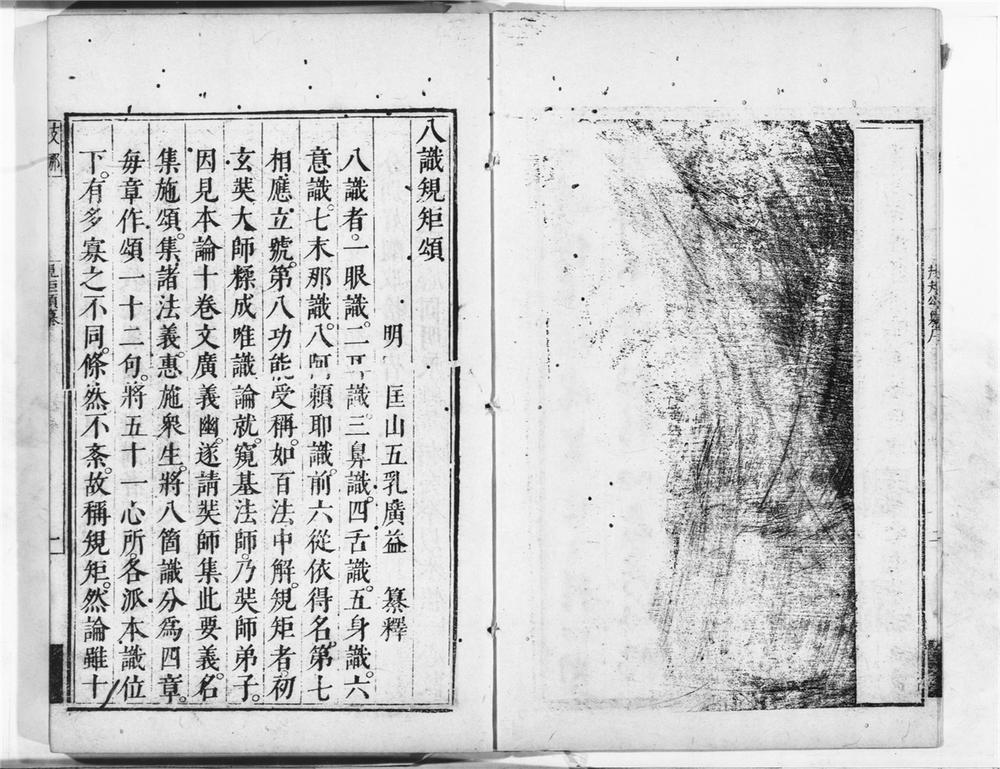 八識規矩頌
明　匡山五乳廣益　纂釋
八識者。一眼識。二耳識。三鼻識。四舌識。五身識。六
意識。七末那識。八阿賴耶識。前六從依得名。第七
相應立號。第八功能受稱。如百法中解。規矩者。初
玄奘大師糅成唯識論就。窺基法師。乃奘師弟子。
因見本論十卷文廣義幽。遂請奘師集此要義。名
集施頌。集諸法義。惠施衆生。將八箇識分爲四章。
每章作頌一十二句。將五十一心所。各派本識位
下。有多寡之不同。條然不紊。故稱規矩。然論雖十
規矩頌纂
一